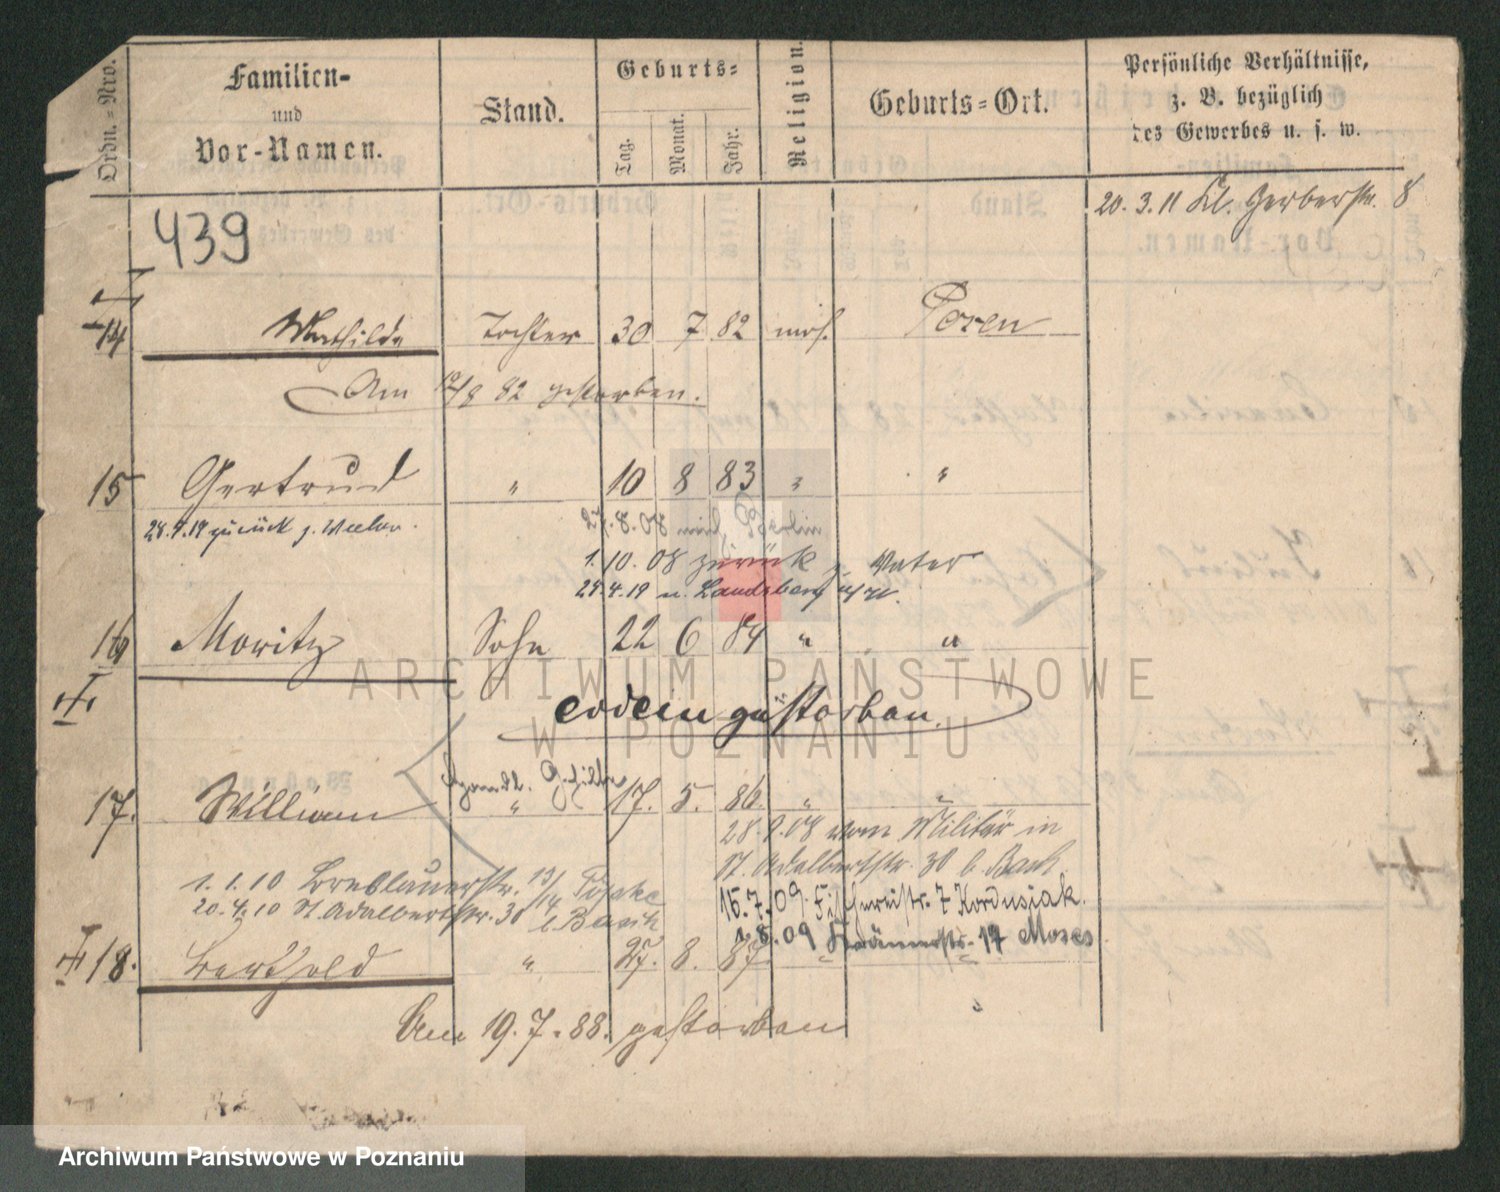 Ordn.-Nro.
Familien-
und
Vor-Namen.
Stand.
Geburts-
Tag.
Monat.
Jahr.
Religion.
Geburts-Ort.
Persönliche Verhältnisse,
z. B. bezüglich
des Gewerbes u. s. w.
20. 3. 11 Kl. Gerberstr. 8
439
14 Mathilde Tochter 30 7 82 mos. Posen
Am 10/8 82 gestorben.
15 Gertrud " 10 8 83 " "
28.4.19 zurück z. Vater.
27.8.08 nach Berlin
1.10.08 zurück z. Vater
24.4.19 n. Landsberg
16 Moritz Sohn 22 6 84 " "
ARCHIWUM PAŃSTWOWE
W POZNANIU
gestorben.
17. William " 17. 5. 86. " "
28.9.08 vom Militär in
St. Adalbertstr. 30 b. Bach
1.1.10 Breslauerstr. 13/14
20.4.10 St. Adalbertstr. 30 b. Bach
15.7.09 Fischereistr. 7 Kordusiak.
1.8.09 Krämerstr. 14 Moses
18. Berthold " 27. 8. 87 " "
Am 19. 7. 88. gestorben
Archiwum Państwowe w Poznaniu